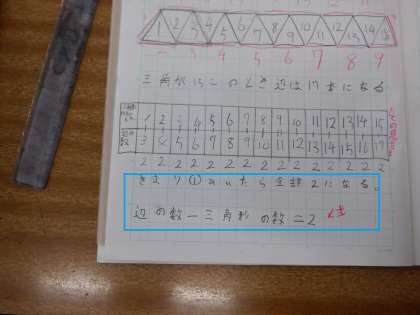 1 2 3 4 5 6 7 8 9 10 11 12 13 14 15
4 5 6 7 8 9
三角が15このとき辺は17本になる
1 2 3 4 5 6 7 8 9 10 11 12 13 14 15
辺の数 3 4 5 6 7 8 9 10 11 12 13 14 15 16 17
2 2 2 2 2 2 2 2 2 2 2 2 2 2 2
きまり① ひいたら全部2になる。
辺の数ー三角形の数=2